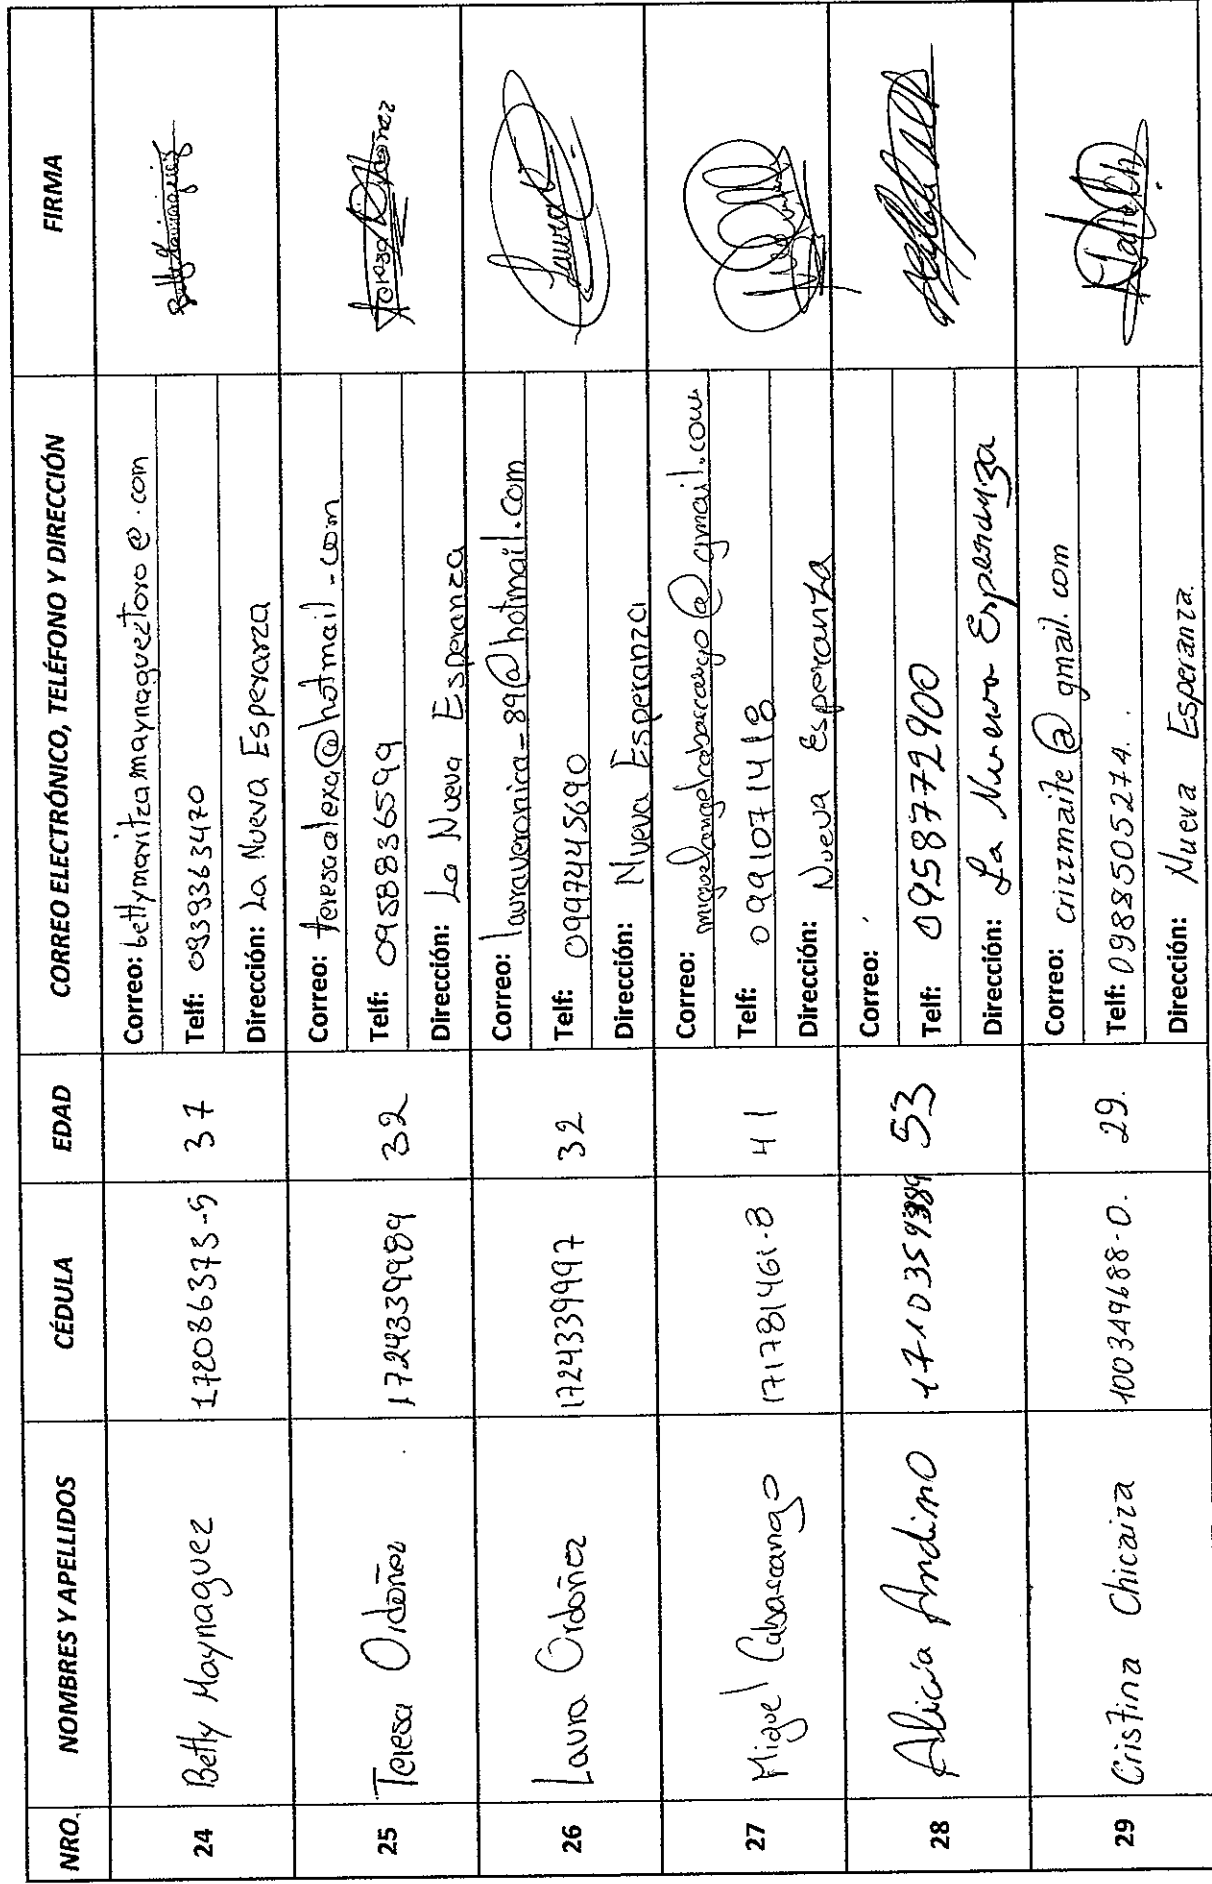 NRO. NOMBRES Y APELLIDOS CÉDULA EDAD CORREO ELECTRÓNICO, TELÉFONO Y DIRECCIÓN FIRMA
24 Betty Maynaguez 172086373-5 37
Correo: bettymaritzamaynagueztoro@.com
Telf: 0939363470
Dirección: La Nueva Esperanza
25 Teresa Ordoñez 1724339989 32
Correo: teresaalexa@hotmail.com
Telf: 0958836599
Dirección: La Nueva Esperanza
26 Laura Ordoñez 1724339997 32
Correo: lauraveronica-89@hotmail.com
Telf: 0997445690
Dirección: Nueva Esperanza
Laura
27 Miguel Cabascango 171781461-3 41
Correo: miguelangelcabascango@gmail.com
Telf: 0991071418
Dirección: Nueva Esperanza
28 Alicia Andino 53
Correo:
Telf: 0958772900
Dirección: La Nueva Esperanza
29 Cristina Chicaiza 100349688-0. 29.
Correo: crizzmaite@gmail.com
Telf: 0988505274.
Dirección: Nueva Esperanza.